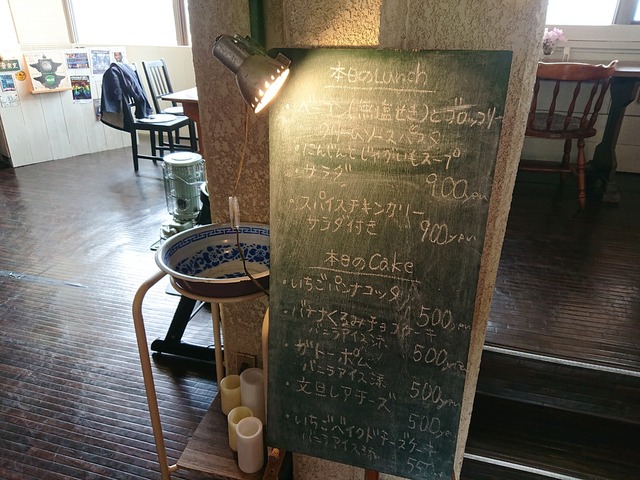 本日のLunch
・ベーコン(無塩せき)とブロッコリー
クリームソースパスタ
・にんじんとじゃがいもスープ
・サラダ 900yen
・スパイスチキンカリー
サラダ付き 900yen
本日のCake
・いちごパンナコッタ 500yen
・バナナくるみチョコケーキ
バニラアイス添 500yen
・ガトーポム
バニラアイス添 500yen
・文旦レアチーズ 500yen
・いちごベイクドチーズケーキ
バニラアイス添 550yen